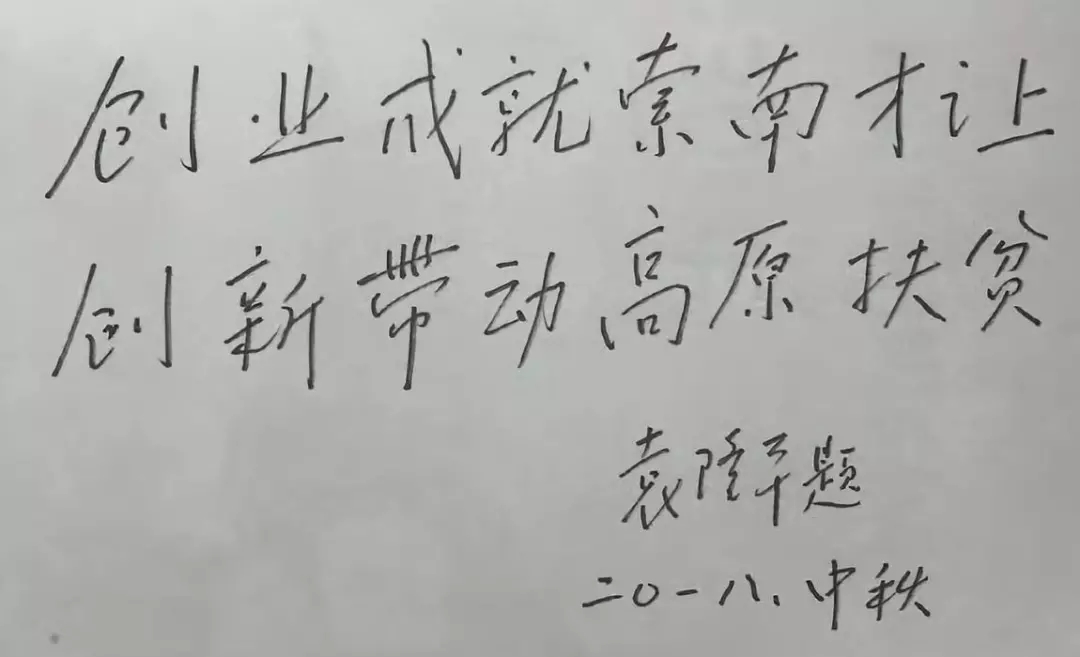 创业成就索南才让
创新带动高原扶贫
袁隆平题
二〇一八、中秋